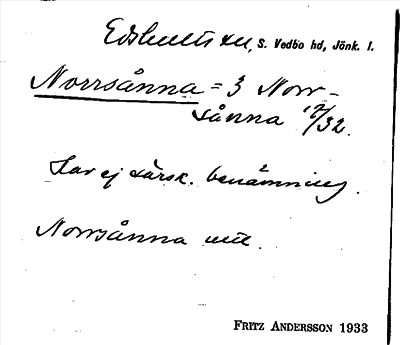 Edshults sn, S. Vedbo hd, Jönk. l.
Norrsånna = 3 Norr-
sånna 12/32.
Har ej särsk. benämning.
Norrsånna
FRITZ ANDERSSON 1933